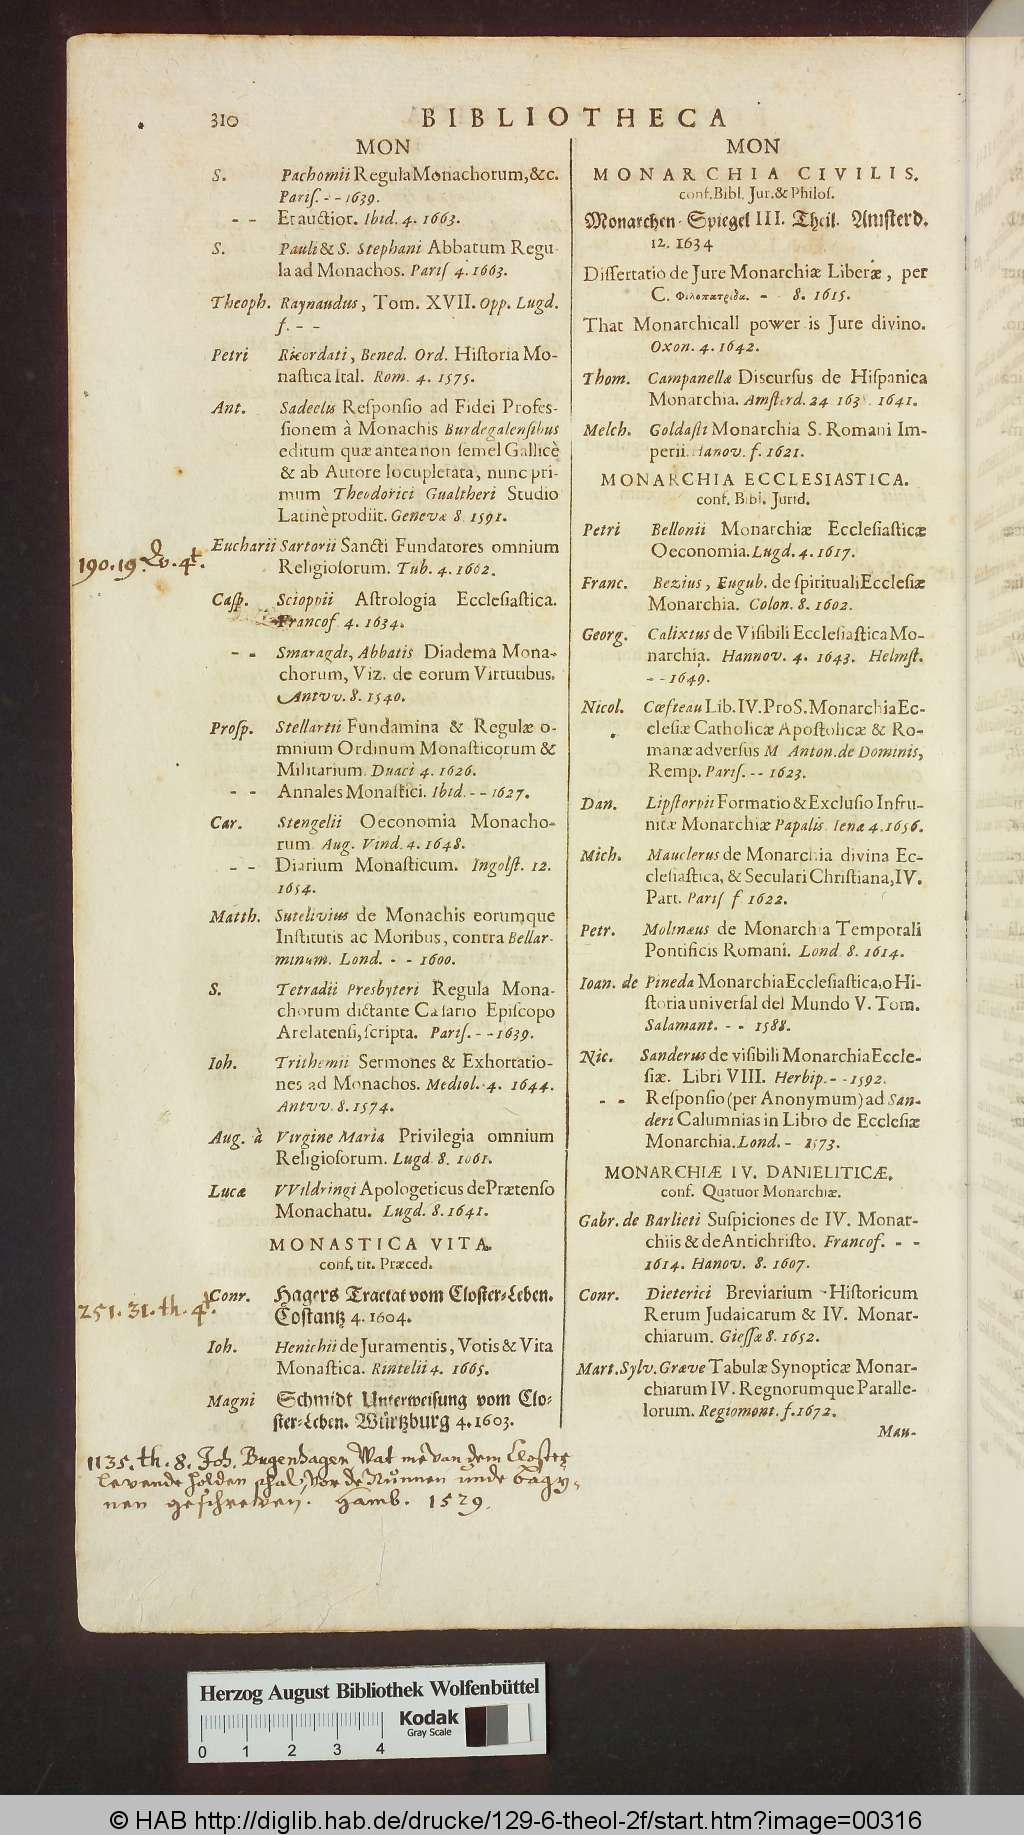 310 BIBLIOTHECA
MON
S. Pachomii Regula Monachorum, &c.
Pariſ. - - 1639.
- - Et auctior. Ibid. 4. 1663.
S. Pauli & S. Stephani Abbatum Regu-
la ad Monachos. Pariſ 4. 1663.
Theoph. Raynaudus, Tom. XVII. Opp. Lugd.
f. - -
Petri Ricordati, Bened. Ord. Hiſtoria Mo-
naſtica Ital. Rom. 4. 1575.
Ant. Sadeelus Reſponſio ad Fidei Profeſ-
ſionem à Monachis Burdegalenſibus
editum quæ antea non ſemel Gallicè
& ab Autore locupletata, nunc pri-
mum Theodorici Gualtheri Studio
Latinè prodiit. Genevæ 8. 1591.
190. 19. Qv. 4t.
Eucharii Sartorii Sancti Fundatores omnium
Religioſorum. Tub. 4. 1602.
Caſp. Scioppii Aſtrologia Eccleſiaſtica.
Francof 4. 1634.
- - Smaragdi, Abbatis Diadema Mona-
chorum, Viz. de eorum Virtutibus.
Antvv. 8. 1540.
Proſp. Stellartii Fundamina & Regulæ o-
mnium Ordinum Monaſticorum &
Militarium. Duaci 4. 1626.
- - Annales Monaſtici. Ibid. - - 1627.
Car. Stengelii Oeconomia Monacho-
rum. Aug. Vind. 4. 1648.
- - Diarium Monaſticum. Ingolſt. 12.
1654.
Matth. Sutclivius de Monachis eorumque
Inſtitutis ac Moribus, contra Bellar-
minum. Lond. - - 1600.
S. Tetradii Presbyteri Regula Mona-
chorum dictante Cæſario Epiſcopo
Arelatenſi, ſcripta. Pariſ. - - 1639.
Ioh. Trithemii Sermones & Exhortatio-
nes ad Monachos. Mediol. 4. 1644.
Antvv. 8. 1574.
Aug. à Virgine Maria Privilegia omnium
Religioſorum. Lugd. 8. 1661.
Lucæ VVildringi Apologeticus de Prætenſo
Monachatu. Lugd. 8. 1641.
MONASTICA VITA.
conf. tit. Præced.
251. 31. th. 4t.
Conr. Hagers Tractat vom Cloſter-Leben.
Coſtantz 4. 1604.
Ioh. Henichii de Juramentis, Votis & Vita
Monaſtica. Rintelii 4. 1665.
Magni Schmidt Unterweiſung vom Clo-
ſter-Leben. Würtzburg 4. 1603.
1135. th. 8. Joh. Bugenhagen Wat me van dem Closter
levende holden schal, vor de Nunnen unde bagy-
nen geschreven. Hamb. 1529.
MON
MONARCHIA CIVILIS.
conf. Bibl. Jur. & Philoſ.
Monarchen-Spiegel III. Theil. Amſterd.
12. 1634
Diſſertatio de Jure Monarchiæ Liberæ, per
C. Φιλοπατριδα. - 8. 1615.
That Monarchicall power is Jure divino.
Oxon. 4. 1642.
Thom. Campanellæ Diſcurſus de Hiſpanica
Monarchia. Amſterd. 24 1641.
Melch. Goldaſti Monarchia S. Romani Im-
perii. Hanov. f. 1621.
MONARCHIA ECCLESIASTICA.
conf. Bibl. Jurid.
Petri Bellonii Monarchiæ Eccleſiaſticæ
Oeconomia. Lugd. 4. 1617.
Franc. Bezius, Eugub. de ſpirituali Eccleſiæ
Monarchia. Colon. 8. 1602.
Georg. Calixtus de Viſibili Eccleſiaſtica Mo-
narchia. Hannov. 4. 1643. Helmſt.
- - 1649.
Nicol. Cœfteau Lib. IV. Pro S. Monarchia Ec-
cleſiæ Catholicæ Apoſtolicæ & Ro-
manæ adverſus M Anton. de Dominis,
Remp. Pariſ. - - 1623.
Dan. Lipſtorpii Formatio & Excluſio Infru-
nitæ Monarchiæ Papalis. Ienæ 4. 1656.
Mich. Mauclerus de Monarchia divina Ec-
cleſiaſtica, & Seculari Chriſtiana, IV.
Part. Pariſ f 1622.
Petr. Molinæus de Monarchia Temporali
Pontificis Romani. Lond. 8. 1614.
Ioan. de Pineda Monarchia Eccleſiaſtica, o Hi-
ſtoria univerſal del Mundo V. Tom.
Salamant. - - 1588.
Nic. Sanderus de viſibili Monarchia Eccle-
ſiæ. Libri VIII. Herbip. - - 1592.
- - Reſponſio (per Anonymum) ad San-
deri Calumnias in Libro de Eccleſiæ
Monarchia. Lond. - 1573.
MONARCHIÆ IV. DANIELITICÆ.
conf. Quatuor Monarchiæ.
Gabr. de Barlieti Suſpiciones de IV. Monar-
chiis & de Antichriſto. Francof. - -
1614. Hanov. 8. 1607.
Conr. Dieterici Breviarium Hiſtoricum
Rerum Judaicarum & IV. Monar-
chiarum. Gieſſæ 8. 1652.
Mart. Sylv. Græve Tabulæ Synopticæ Monar-
chiarum IV. Regnorumque Paralle-
lorum. Regiomont. f. 1672.
Mau-
Herzog August Bibliothek Wolfenbüttel
Kodak
Gray Scale
0 1 2 3 4
© HAB http://diglib.hab.de/drucke/129-6-theol-2f/start.htm?image=00316